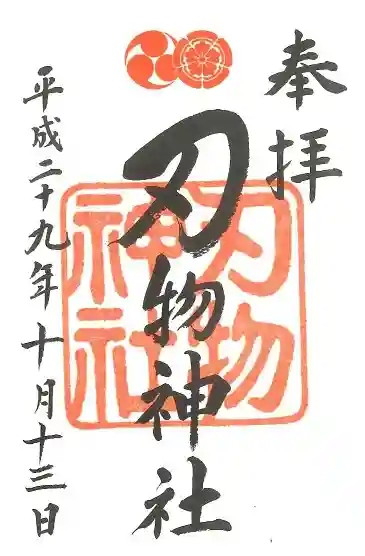 奉拝
刃物神社
刃物
神社
平成二十九年十月十三日